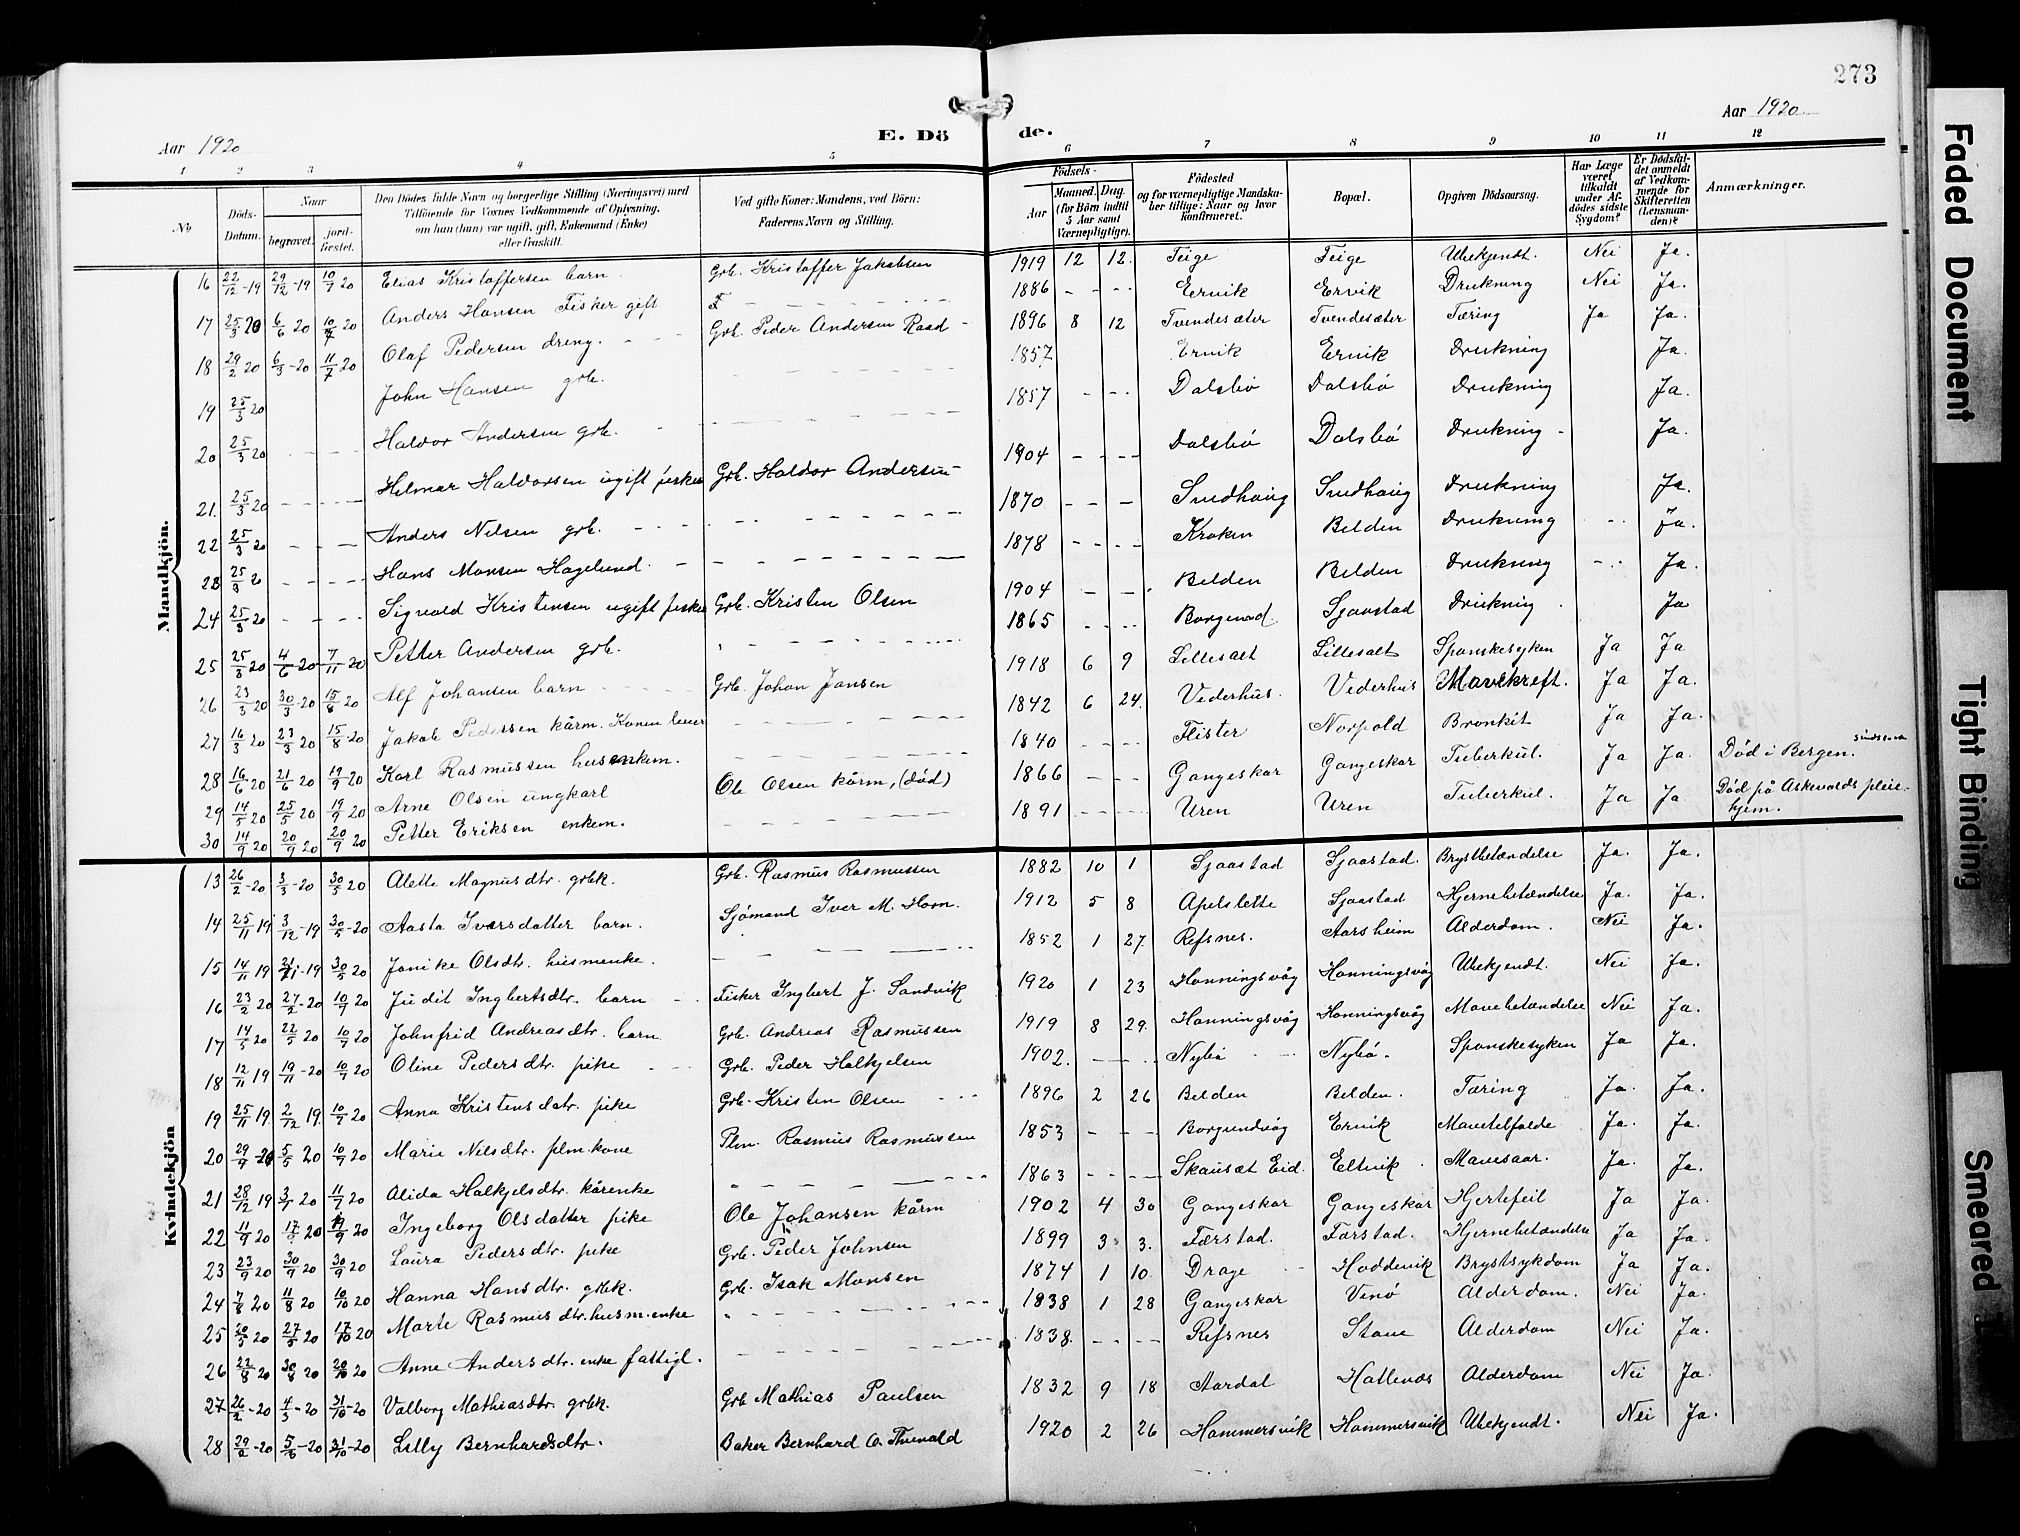 273
Aar 1920
E. Dö
de.
Aar 1920
1 2 3 4 5 6 7 8 9 10 11 12
No
Döds-Datum.
Naar
begravet.
jord-fæstet.
Den Dödes fulde Navn og borgerlige Stilling (Næringsvei) med Tilföiende for Voxnes Vedkommende af Oplysning, om han (hun) var ugift, gift, Enkemand (Enke) eller fraskilt.
Ved gifte Koner: Mandens, ved Börn: Faderens Navn og Stilling.
Födsels-
Aar
Maaned. Dag.
(for Börn indtil 5 Aar samt Værnepligtige).
Födested og for værnepligtige Mandskaber tillige: Naar og hvor konfirmeret.
Bopæl.
Opgiven Dödsaarsag.
Har Læge været tilkaldt under Afdödes sidste Sygdom?
Er Dödsfaldet anmeldt af Vedkommende for Skifteretten (Lensmanden)?
Anmærkninger.
Mandkjön.
16 22/12-19 29/12-19 10/7 20 Elias Kristoffersen barn Grb. Kristoffer Jakobsen 1919 12 12. Teige Teige Ubekjendt. Nei Ja.
17 25/3 20 6/6 20 10/7 20 Anders Hansen Fisker gift F - - - 1886 - - - Ervik Ervik Drukning Nei Ja.
18 29/2 20 6/3-20 11/7 20 Olaf Pedersen dreng. Grb. Peder Andersen Raad - 1896 8 12 Tvendesæter Tvendesæter Tæring Ja Ja.
19 25/3 20 John Hansen grb. - - - 1857 Ervik Ervik Drukning Ja.
20 25/3 20 - - - Haldor Andersen grb. - - - 1857 - - - Dalsbö Dalsbö Drukning Ja.
21. 25/3 20 - - - Hilmar Haldorsen ugift fisker Grb. Haldor Andersen - 1904 - - - Dalsbö Dalsbö Drukning - Ja.
22 25/3 20 - - - Anders Nilsen grb. - - - 1870 - - - Smdhaug Smdhaug Drukning Ja.
23 25/3 20 - - - Hans Monsen Hagelund. - - - 1878 - - - Kroken Belden Drukning - - Ja.
24 25/3 20 - - - Sigvald Kristensen ugift fisker Grb. Kristen Olsen 1904 - - - Belden Belden Drukning - - Ja.
25 25/3 20 4/6-20 7/11 20 Petter Andersen grb. - - - 1865 - - - Borgund. Sjaastad Drukning Ja
26 23/3 20 30/3-20 15/8 20 Alf Johansen barn Grb. Johan Jansen 1918 6 9 Lillesalt Lillesalt Spanskesyken Ja Ja
27 16/3 20 23/3 20 15/8 20 Jakob Pedersen kårm. Konen lever - - - 1842 6 24. Vederhus. Vederhus Mavekreft. Ja Ja.
28 16/6 20 21/6 20 19/9 20 Karl Rasmussen husenkem. - - - 1840 - - - Flister Norpold Bronkit Ja Ja.
29 14/5 20 25/5 20 19/9 20 Arne Olsen ungkarl Ole Olsen kårm, (död) 1866 - - - Gangeskar Gangeskar Tuberkul. Ja Ja. Död i Bergen.
30 14/9 20 20/9 20 20/9 20 Petter Eriksen enkem. - - - 1891 - - - Uren Uren Tuberkul. Ja Ja. Död på Askevolds pleiehjem.
Kvindekjön
13 26/2-20 3/3-20 30/5 20 Alette Magnusdtr. grbk. Grb. Rasmus Rasmussen 1882 10 1 Sjaastad Sjaastad. Brystbetændelse Ja. Ja.
14 25/11 19 3/12-19 30/5-20 Aasta Iversdatter barn. Sjömand Iver M. Horn. 1912 5 8 Apelslette Sjaastad Hjernebetændelse Ja. Ja.
15 14/11 19 21/11-19 30/5 20 Janike Olsdtr. husmenke. - - - 1852 1 27. Refsnes. Aarsheim Alderdom. Nei Ja.
16 23/2 20 27/2-20 10/7 20 Judit Ingbertsdtr. barn - Fisker Ingbert J. Sandvik 1920 1 23 Honningsvåg Honningsvåg Ubekjendt. Nei Ja.
17 14/5 20 22/5 20 10/7 20 Johnfrid Andreasdtr. barn Grb. Andreas Rasmussen 1919 8 29. Honningsvåg Honningsvåg Mavebetændelse Nei Ja.
18 12/11 19 19/11-20 10/7 20 Oline Pedersdtr. pike - - Grb. Peder Halkjelsen 1902. - - - Nybö - - Nybö. Spanskesyken Ja Ja.
19 25/11 19. 2/12 19. 10/7 20 Anna Kristensdatr. pike Grb. Kristen Olsen - - - 1896 2 26 Belden Belden. Tæring Ja. Ja.
20 29/4-20 5/5 20 10/7 20 Marie Nilsdtr. plm. kone Plm. Rasmus Rasmussen 1853 - - - Borgundvåg Ervik Ja. Ja.
21 28/12 19 3/1 20 11/7 20 Alida Halkjelsdtr. kårenke - - - 1863 - - - Skausæt Eid. Eltvik. Mavesaar. Ja. Ja.
22 11/9 20 20 20 Ingeborg Olsdatter pike Ole Johansen kårm 1902 4 30 Gangeskar Gangeskar Hjertefeil Ja Ja.
23 23/9 20 30/9 20 30/9 20 Laura Pedersdtr. pike Grb. Peder Johnsen 1899 3 3. Færstad. Færstad. Hjernebetændelse Ja Ja.
24 7/8 20 11/8 20 10/10 20 Hanna Hansdtr. grbk. Grb. Isak Monsen 1874 1 10. Drage - - Hoddevik Brystsykdom Ja Ja.
25 20/5 20 27/5 20 17/10 20 Marte Rasmusdtr. husm. enke - - - 1838 1 28 Gangeskar Venö Alderdom. Nei Ja.
26 22/8 20 30/8 20 20/10 20 Anne Andersdtr. enke fattigl. - - - 1838. - - - Refsnes Stave Alderdom Nei Ja.
27 26/2-20 4/3-20 31/10-20 Valborg Mathiasdtr. grbk. Grb Mathias Paulsen 1832 9 18 Aardal Hallenæs Alderdom Nei Ja.
28 29/2-20 5/3-20 31/10-20 Lilly Bernhardsdtr. Baker Bernhard O. Thunold 1920 2 26 Hammersvik Hammersvik Ubekjendt. Nei Ja.
Faded Document
Tight Binding
Smeared